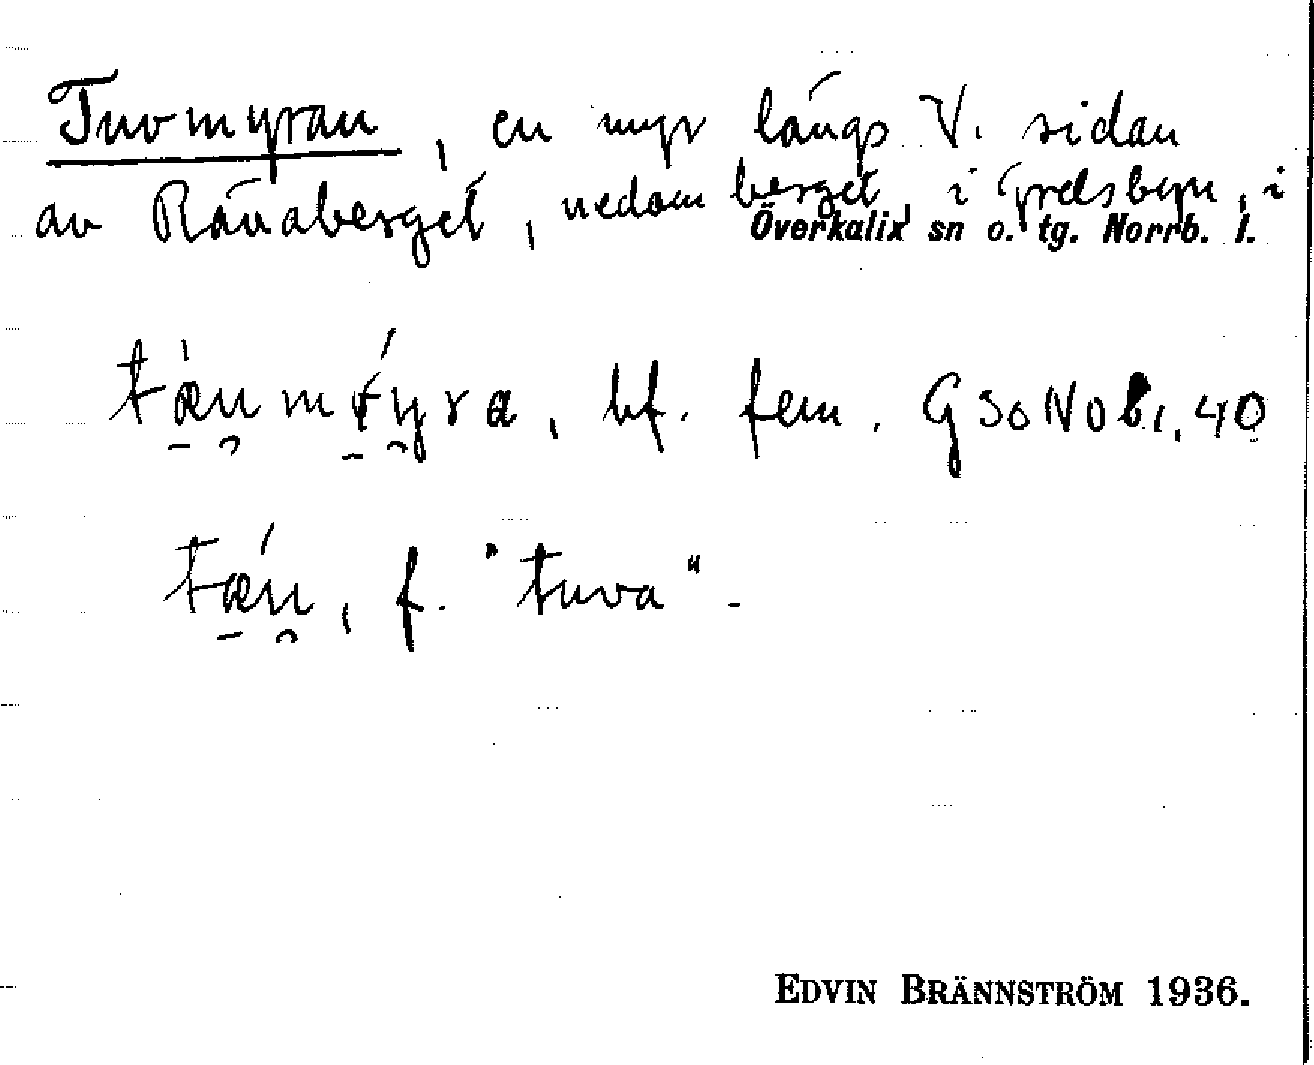 Tuvmyran, en myr längs V. sidan
av Rånaberget, nedom berget, i Grelsbyn, i
Överkalix sn o. tg. Norrb. l.
tæ̀um ýyra, bf. fem. GSoNoBi, 40
tæ̀u, f. "tuva".
EDVIN BRÄNNSTRÖM 1936.